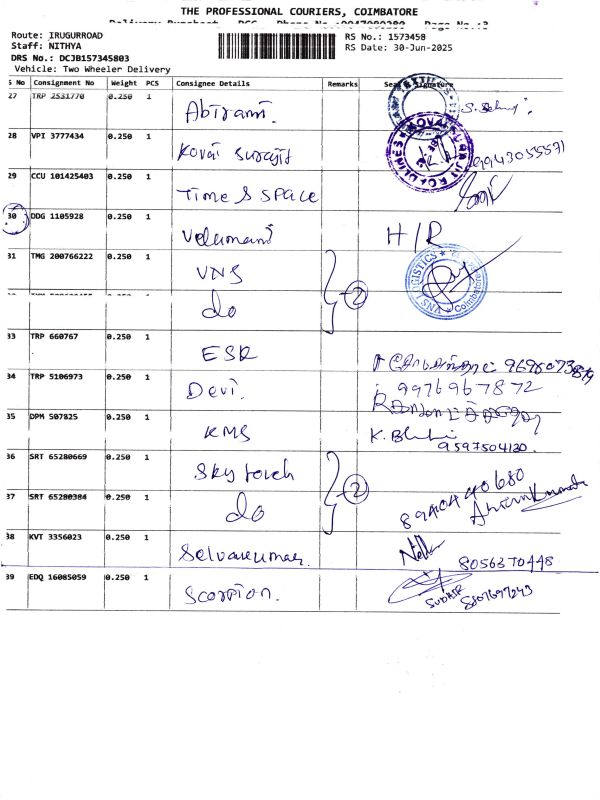 THE PROFESSIONAL COURIERS, COIMBATORE
Route: IRUGURROAD
Staff: NITHYA
DRS No.: DCJB157345803
Vehicle: Two Wheeler Delivery
RS No.: 1573458
RS Date: 30-Jun-2025
S No Consignment No Weight PCS Consignee Details Remarks
27 TRP 2531770 0.250 1 Abirami.
28 VPI 3777434 0.250 1 Kovai Surajit 9943055591
29 CCU 101425403 0.250 1 Time & Space
30 DDG 1105928 0.250 1 Velumani H/R
31 TMG 200766222 0.250 1 VNS 2 VNS LOGISTICS Coimbatore
do
33 TRP 660767 0.250 1 ESR
34 TRP 5106973 0.250 1 Devi. 9976967872
35 DPM 507825 0.250 1 KMS 9597504120.
36 SRT 65280669 0.250 1 Sky touch 2
37 SRT 65280384 0.250 1 do
38 KVT 3356023 0.250 1 Selvakumar. 8056370448
39 EDQ 16085059 0.250 1 Scorpion. SUDHIR